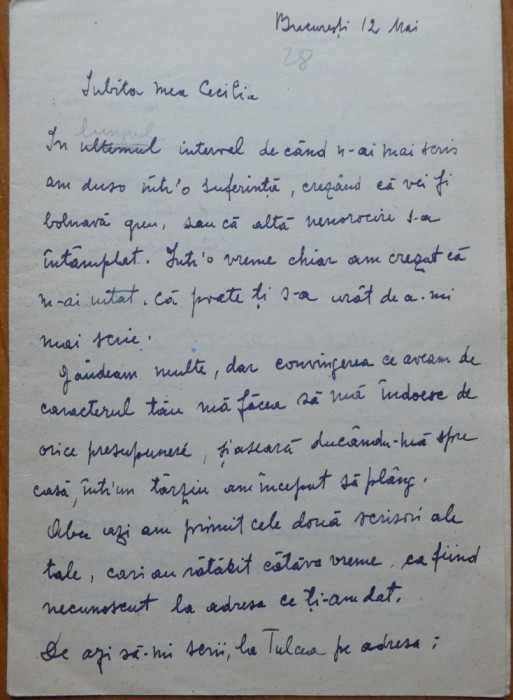 București 12 Mai
28
Iubita mea Cecilia
lungul
In ultimul interval de când n-ai mai scris
am dus-o într'o suferință, crezând că vei fi
bolnavă greu, sau că altă nenorocire s-a
întâmplat. Intr'o vreme chiar am crezut că
m-ai uitat. că poate ți s-a urât de a-mi
mai scrie.
Gândeam multe, dar convingerea ce aveam de
caracterul tău mă făcea să mă îndoesc de
orice presupunere, și aseară ducându-mă spre
casă, într'un târziu am început să plâng.
Abia azi am primit cele două scrisori ale
tale, cari au rătăcit câtăva vreme, ca fiind
necunoscut la adresa ce ți-am dat.
De azi să-mi scrii, la Tulcea pe adresa: